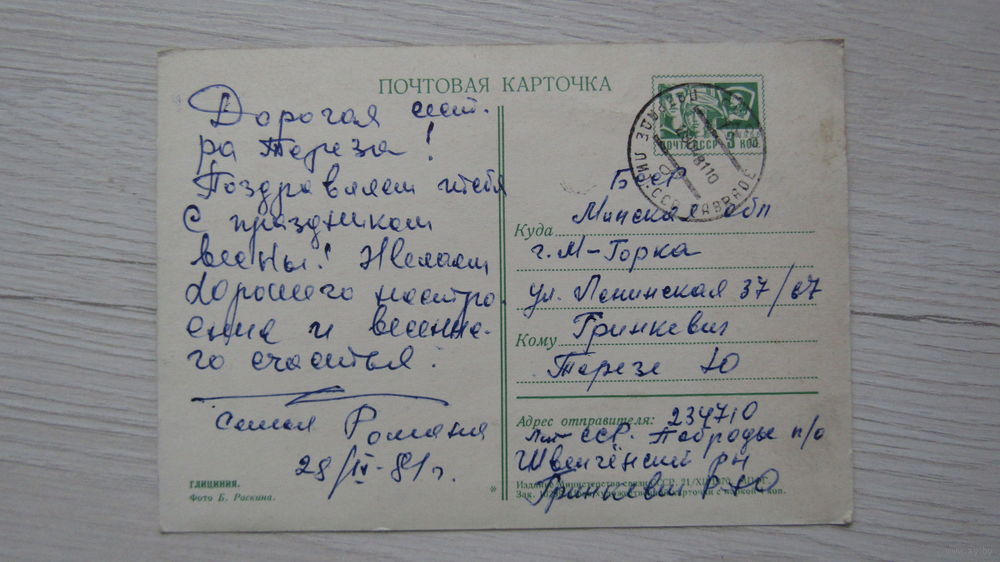 ПОЧТОВАЯ КАРТОЧКА
Дорогая сест-
ра Тереза!
Поздравляем тебя
с праздником
весны! Желаем
хорошего настро
ения и весенне-
го счастья!
семья Романа
28/IV-81г.
ГЛИЦИНИЯ.
Фото Б. Раскина.
ПОЧТА СССР 3 КОП.
PABRADE
Минская обл
Куда
г. М-Горка
ул. Ленинская 37/67
Гринкевич
Кому
Терезе Ю
Адрес отправителя: 234710
Лит ССР. Пабраде п/о
Швенчёнский рн
Издание Министерства связи СССР. 21/XII
Гринкевич Р Ю
Зак.